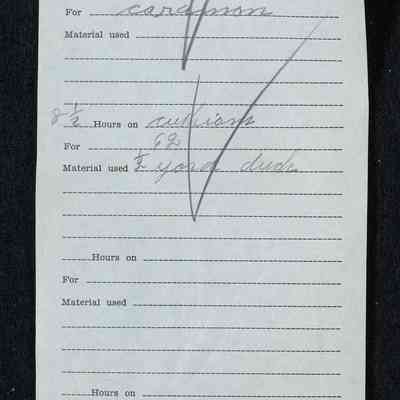 For
Material used
8 1/2 Hours on cushions
For 62
Material used 1/2 yard duck
Hours on
For
Material used
Hours on